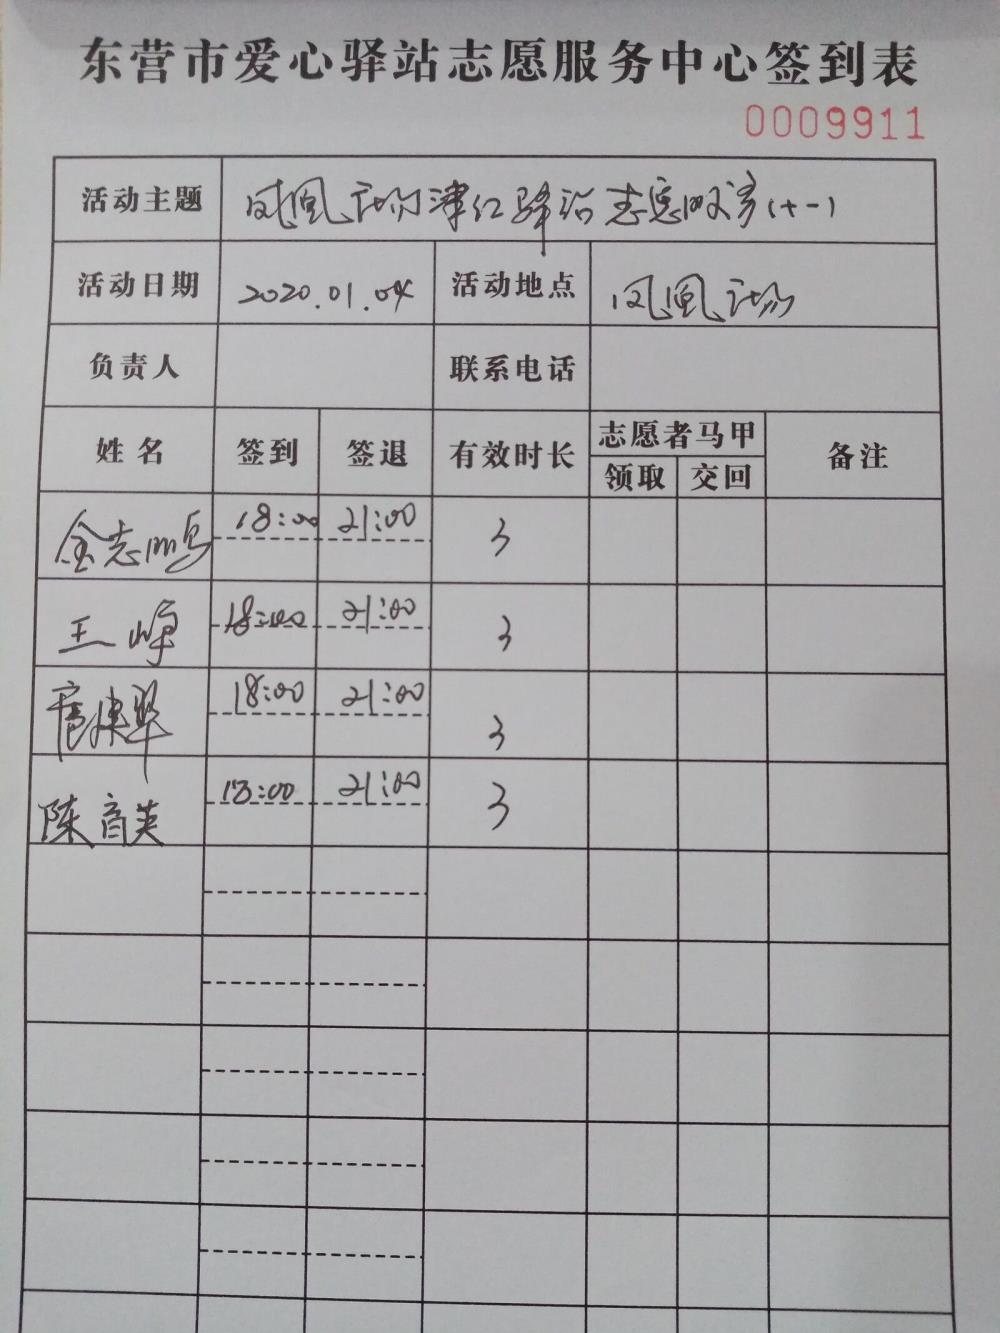 东营市爱心驿站志愿服务中心签到表
0009911
活动主题 凤凰 津红驿站志愿服务(十一)
活动日期 2020.01.04 活动地点 凤凰
负责人 联系电话
姓名 签到 签退 有效时长 志愿者马甲 备注
领取 交回
金志鹏 18:00 21:00 3
王峥 18:00 21:00 3
18:00 21:00 3
陈音英 18:00 21:00 3